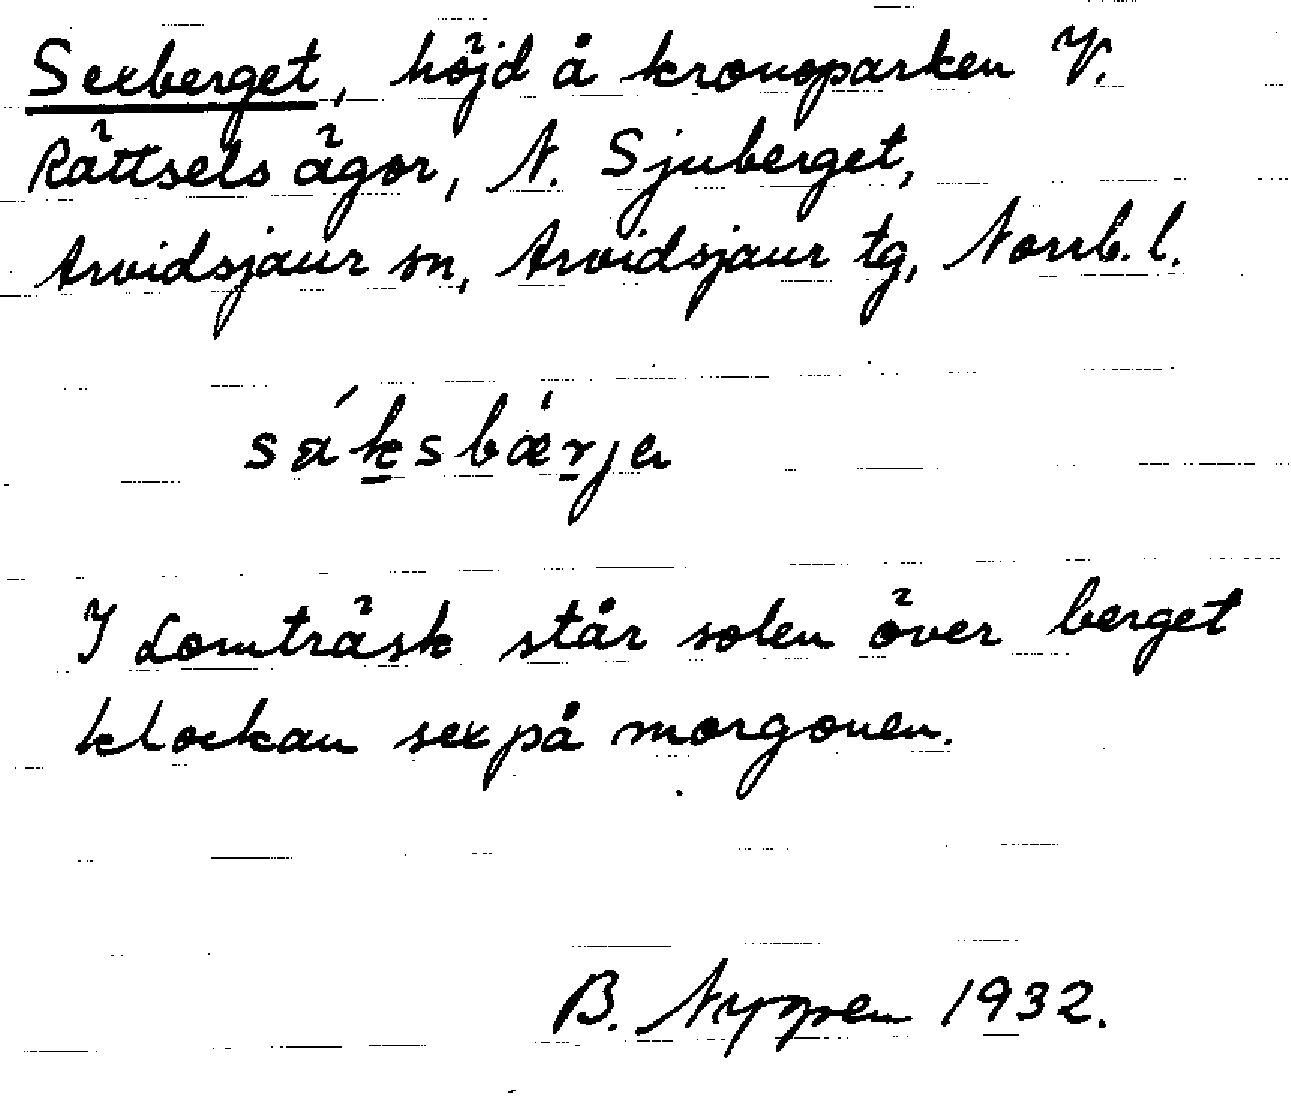 Sexberget, höjd å kronoparken V.
Rättsels ägor, N. Sjuberget,
Arvidsjaur sn, Arvidsjaur tg, Norrb. l.
sáksbærja
I Lomträsk står solen över berget
klockan sex på morgonen.
B. Nygren 1932.